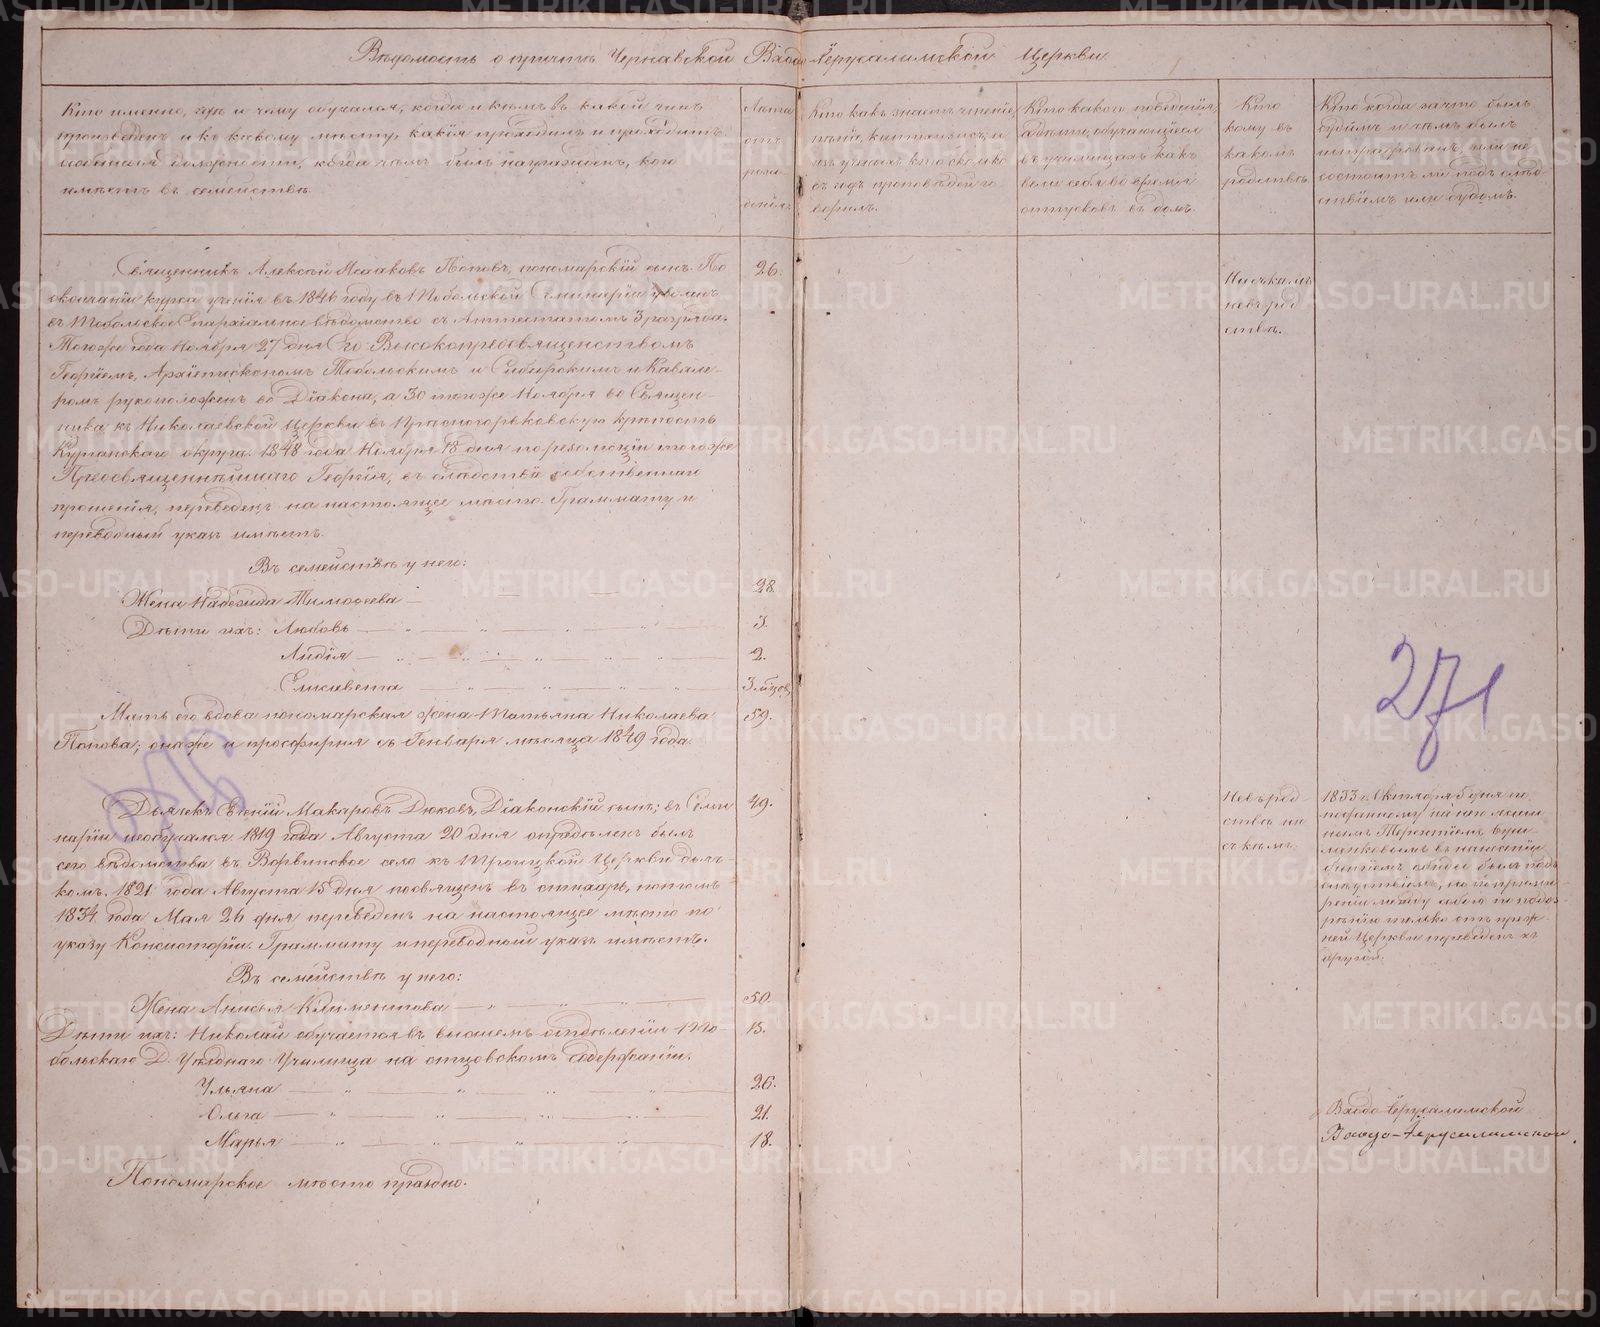 Вѣдомость о причтѣ Чернавской Входо Іерусалимской Церкви
Кто именно, гдѣ и чему обучался, когда и кѣмъ въ какой чинъ
произведенъ и къ какому мѣсту, какія проходилъ и проходитъ
должности, когда чѣмъ былъ награжденъ, кого
имѣетъ въ семействѣ.
Лѣта
отъ
рож-
денія.
Кто какъ знаетъ чтеніе,
пѣніе, катихизисъ, и
изъ ученыхъ кто сколько
въ годъ проповѣдей го-
ворилъ.
Кто какого поведенія,
а дѣти, обучающіеся
въ училищахъ какъ
вели себя во время
отпусковъ въ домъ.
Кто
кому въ
какомъ
родствѣ
Кто когда за что былъ
судимъ и чѣмъ былъ
штрафованъ, или не
состоитъ ли подъ слѣд-
ствіемъ или судомъ.
Священникъ Алексѣй Исааковъ Поповъ, пономарскій сынъ. По
окончаніи курса ученія въ 1846 году въ Тобольской Семинаріи уволенъ
въ Тобольское Епархіальное вѣдомство съ Аттестатомъ 3 разряда.
Тогоже года Ноября 27 дня Его Высокопреосвященствомъ
Георгіемъ, Архіепископомъ Тобольскимъ и Сибирскимъ и Кавале-
ромъ рукоположенъ во Діакона, а 30 тогоже Ноября во Священ-
ника къ Николаевской Церкви въ Прѣсногорьковскую крѣпость
Курганскаго округа. 1848 года Ноября 18 дня по резолюціи тогоже
Преосвященнѣйшаго Георгія, въ слѣдствіе собственнаго
прошенія, переведенъ на настоящее мѣсто. Граммату и
переводный указъ имѣетъ.
26.
Ни съ кѣмъ
не въ род
ствѣ.
Въ семействѣ у него:
Жена Надежда Тимоѳеева — 28
Дѣти ихъ: Любовь — 3.
Лидія — 2.
Елисавета — 3 мѣсяц.
Мать его вдова пономарская жена Татьяна Николаева 59.
Попова; она же и просфирня съ Генваря мѣсяца 1849 года.
271
Дьячекъ Евгеній Макаровъ Дюковъ, Діаконскій сынъ; въ Семи
наріи необучался 1819 года Августа 20 дня опредѣленъ былъ
сего вѣдомства въ село къ Троицкой Церкви дьяч-
комъ. 1821 года Августа 15 дня посвященъ въ стихарь, потомъ
1834 года Мая 26 дня переведенъ на настоящее мѣсто по
указу Консисторіи. Граммату и переводный указъ имѣетъ.
49.
Не въ род
ствѣ ни
съ кѣмъ.
1833 г. Октября 5 дня по
показанному на него
нымъ Терентіемъ
въ нанесеніи
обиды былъ подъ
слѣдствіемъ, но по прими-
реніи между собою по подоз-
рѣнію только отъ преж-
ней Церкви переведенъ къ
другой.
Въ семействѣ у него:
Жена Анисья Климентова — 50.
Дѣти ихъ: Николай обучается въ высшемъ отдѣленіи То- 15.
больскаго Д. Уѣзднаго Училища на отцовскомъ содержаніи.
Ульяна — 26.
Ольга — 21.
Марья — 18.
Пономарское мѣсто праздно.
Входо-Іерусалимской
Входо-Іерусалимской
METRIKI.GASO-URAL.RU